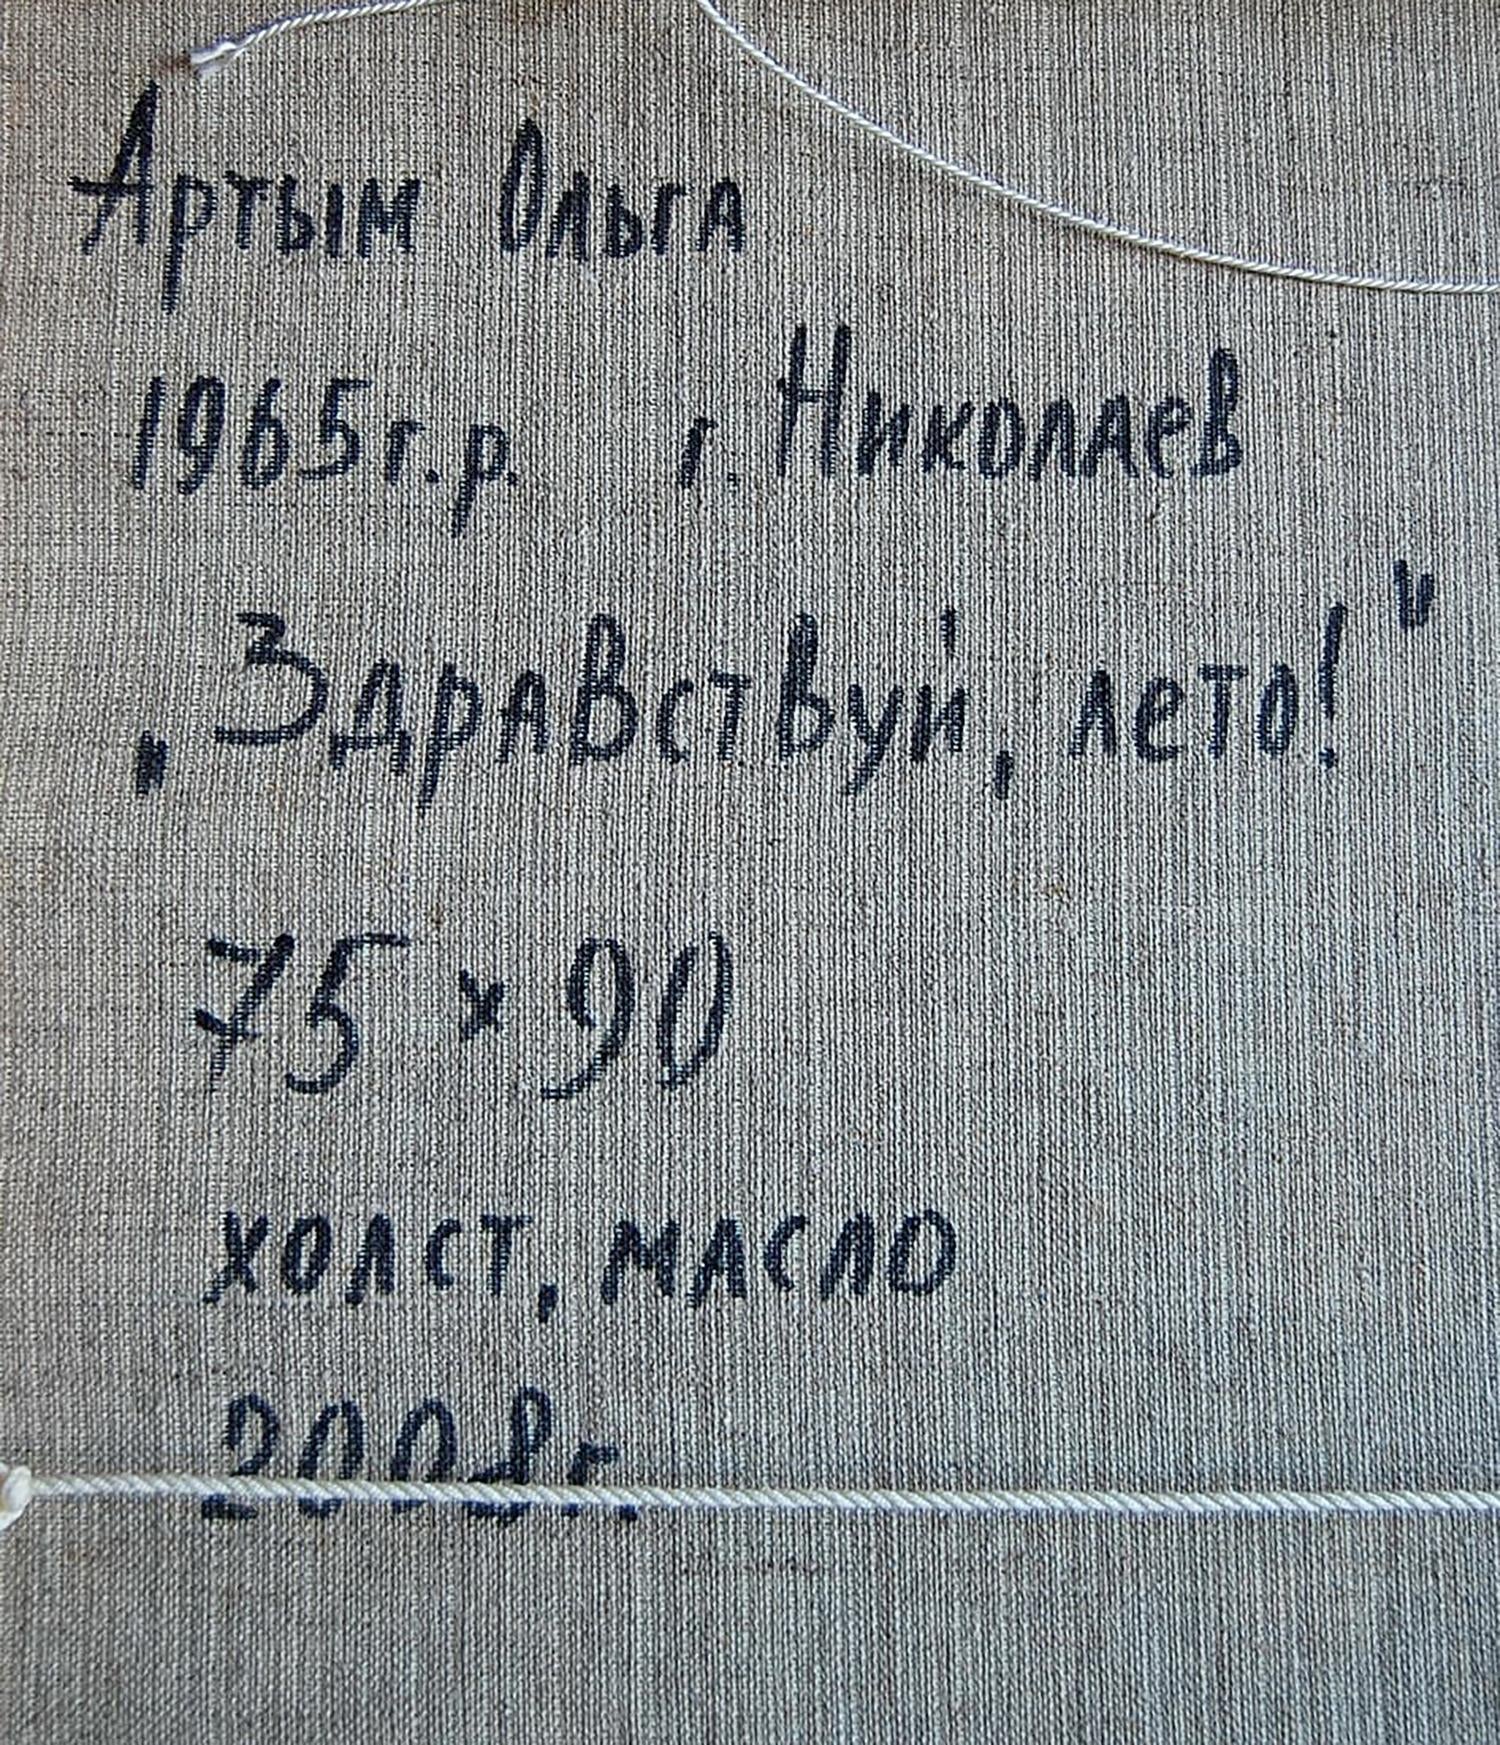 Артым Ольга
1965г.р. г. Николаев
„Здравствуй, лето!"
75 × 90
холст, масло
2008г.